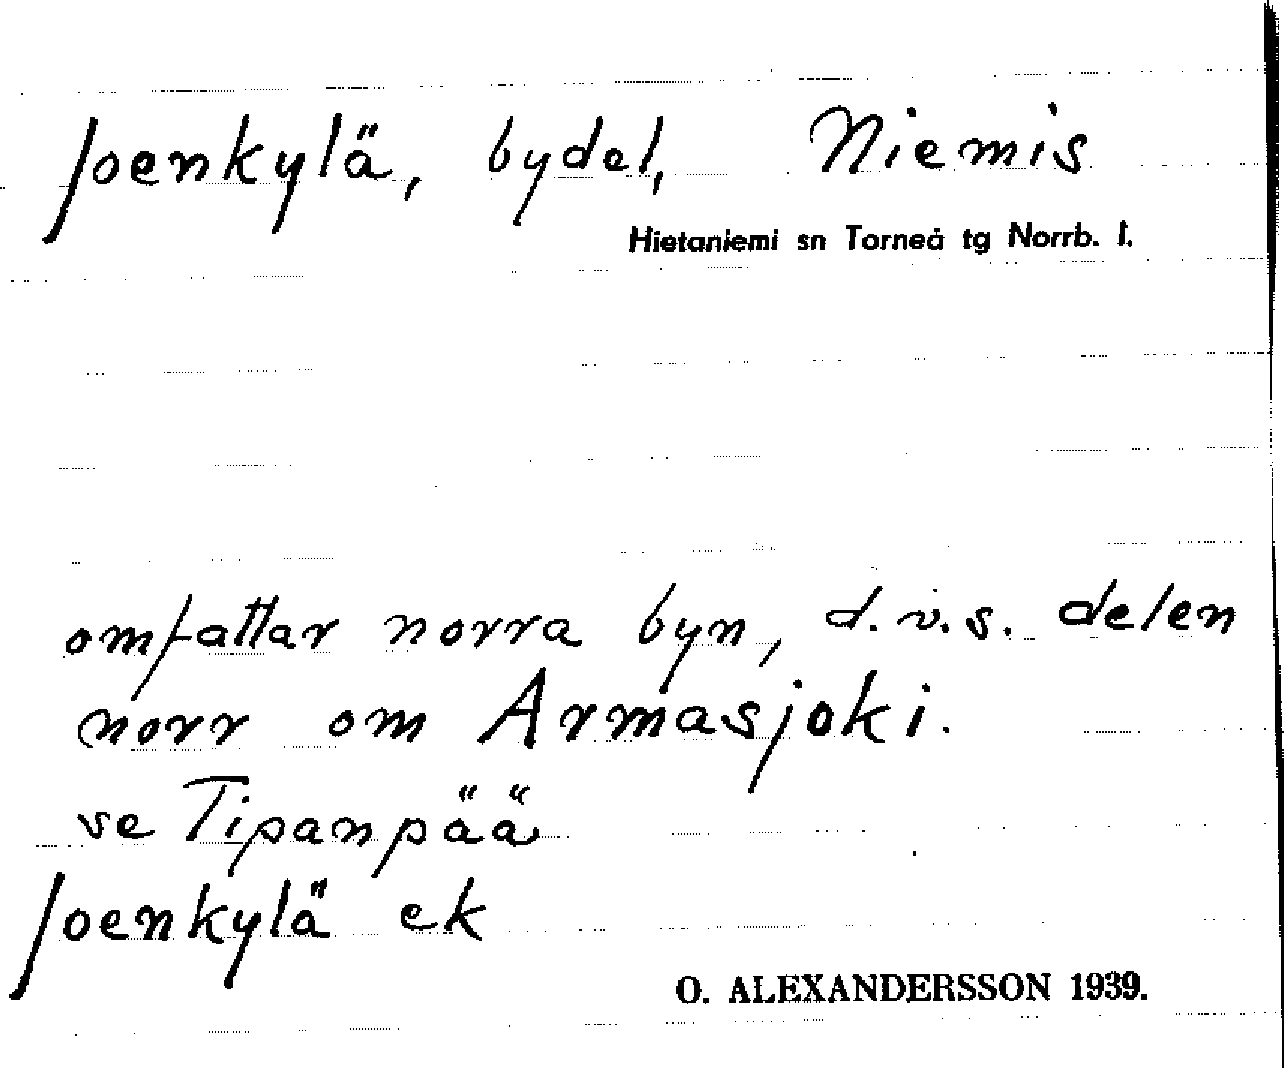 Joenkylä, bydel, Niemis
Hietaniemi sn Torneå tg Norrb. l.
omfattar norra byn, d.v.s. delen
norr om Armasjoki.
se Tipanpää
Joenkylä ek
O. ALEXANDERSSON 1939.